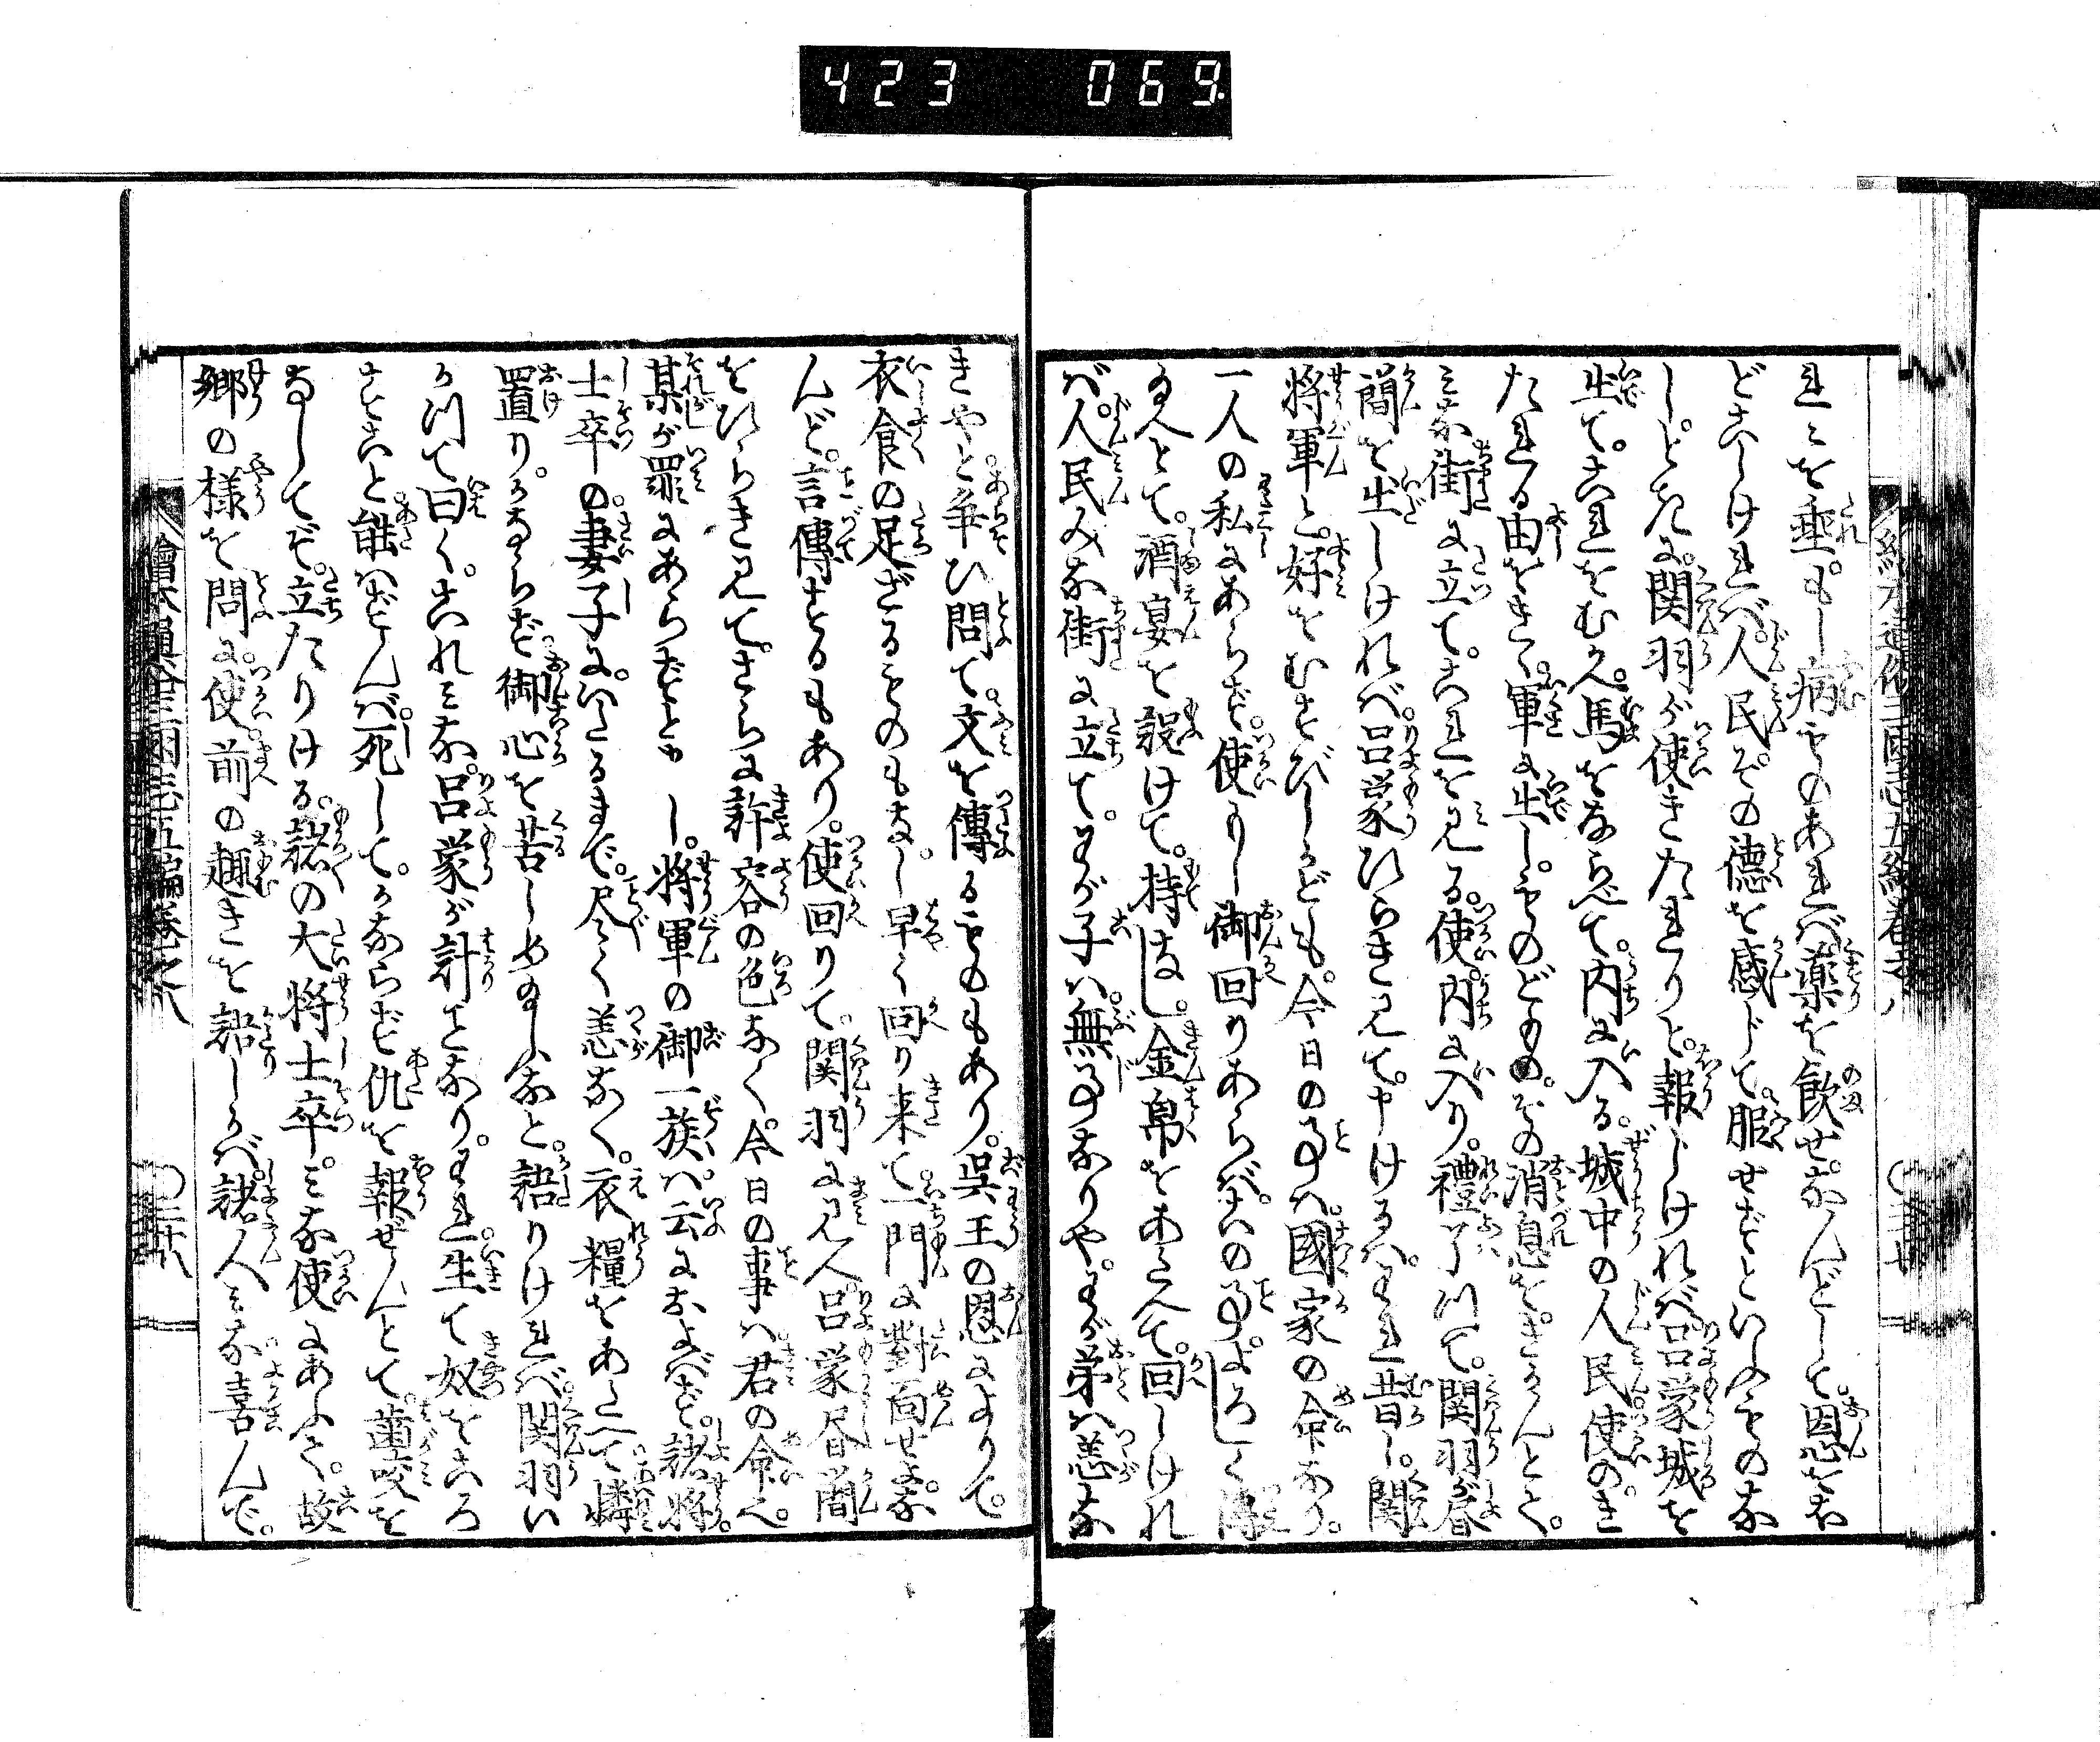 423 069
れみを垂もし病ものあれば薬を飲せなんどして恩をほ
どこしければ人民その徳を感じて服せずといふものな
しときに関羽が使きたれりと報じければ呂蒙城を
出てこれをむかへ馬をならべて内に入る城中の人民使のき
たれる由をきゝ軍に出しものどもの其の消息をきかんとて
みな街に立てこれを見る使内に入り禮了つて関羽が書
簡を出しければ呂蒙ひらき見て申けるはわれ昔し関
将軍と好をむすびしかども今日の事は國家の命あり
一人の私にあらず使よし御回りあらばこの事よろしく傳
給へとて酒宴を設けて持なし金帛をあたへて回しけれ
ば人民みな街に立てわが子は無事なりやわが弟は恙な
きやと争ひ問て文を傳るものもあり呉王の恩によりて
衣食の足ざるものもなし早く回り来て一門に對面せよな
んど言傳するもあり使回りて関羽に見へ呂蒙が書簡
をひらき見てさらに許容の色なく今日の事は君の命也
某が罪にあらずと申し将軍の御一族は云におよばず諸将
士卒の妻子にいたるまで尽く恙なく衣糧をあたへて憐み
置りかならず御心を苦しめ給ふなと語りければ関羽い
かつて曰くこれみな呂蒙が計ことなりわれ生て奴をころ
すこと能はずんば死してかならず仇を報ぜんとて歯咬を
なしてぞ立たりける諸の大将士卒みな使にあふて故
郷の様を問に使前の趣きを語しかば諸人みな喜んで
繪本通俗三國志五編巻之八